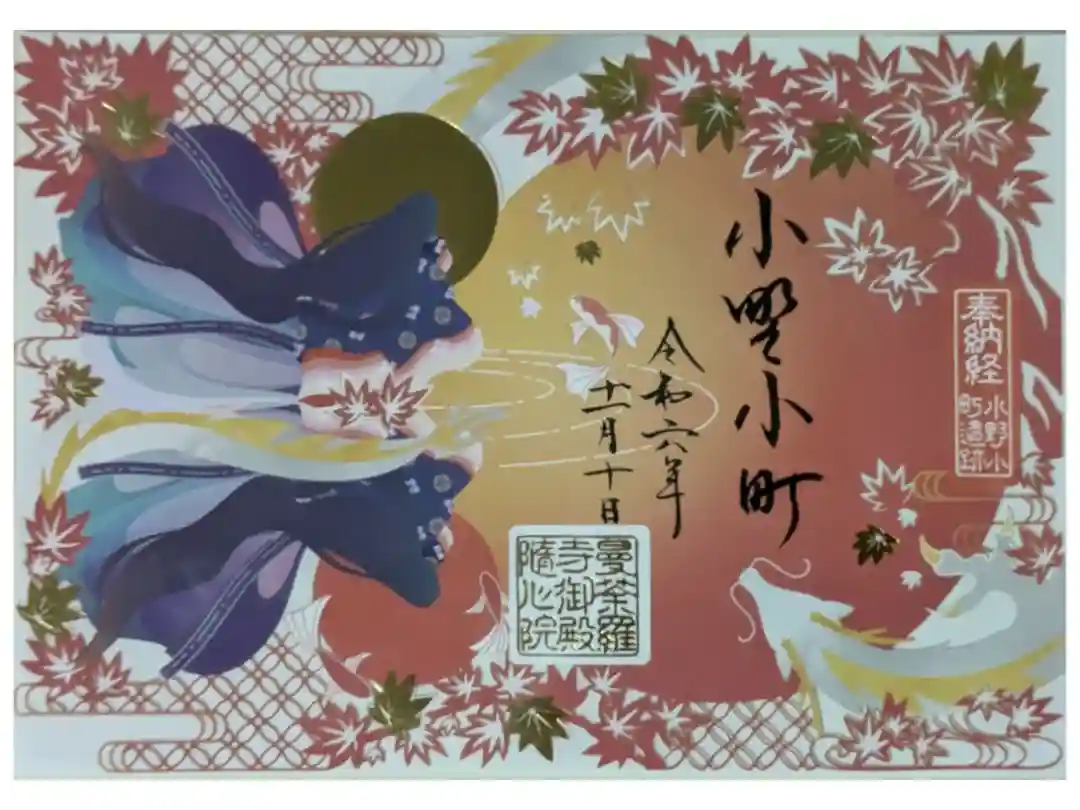 奉納経
小野小
町遺跡
小野小町
令和六年
十一月十日
曼荼羅
寺御殿
隨心院